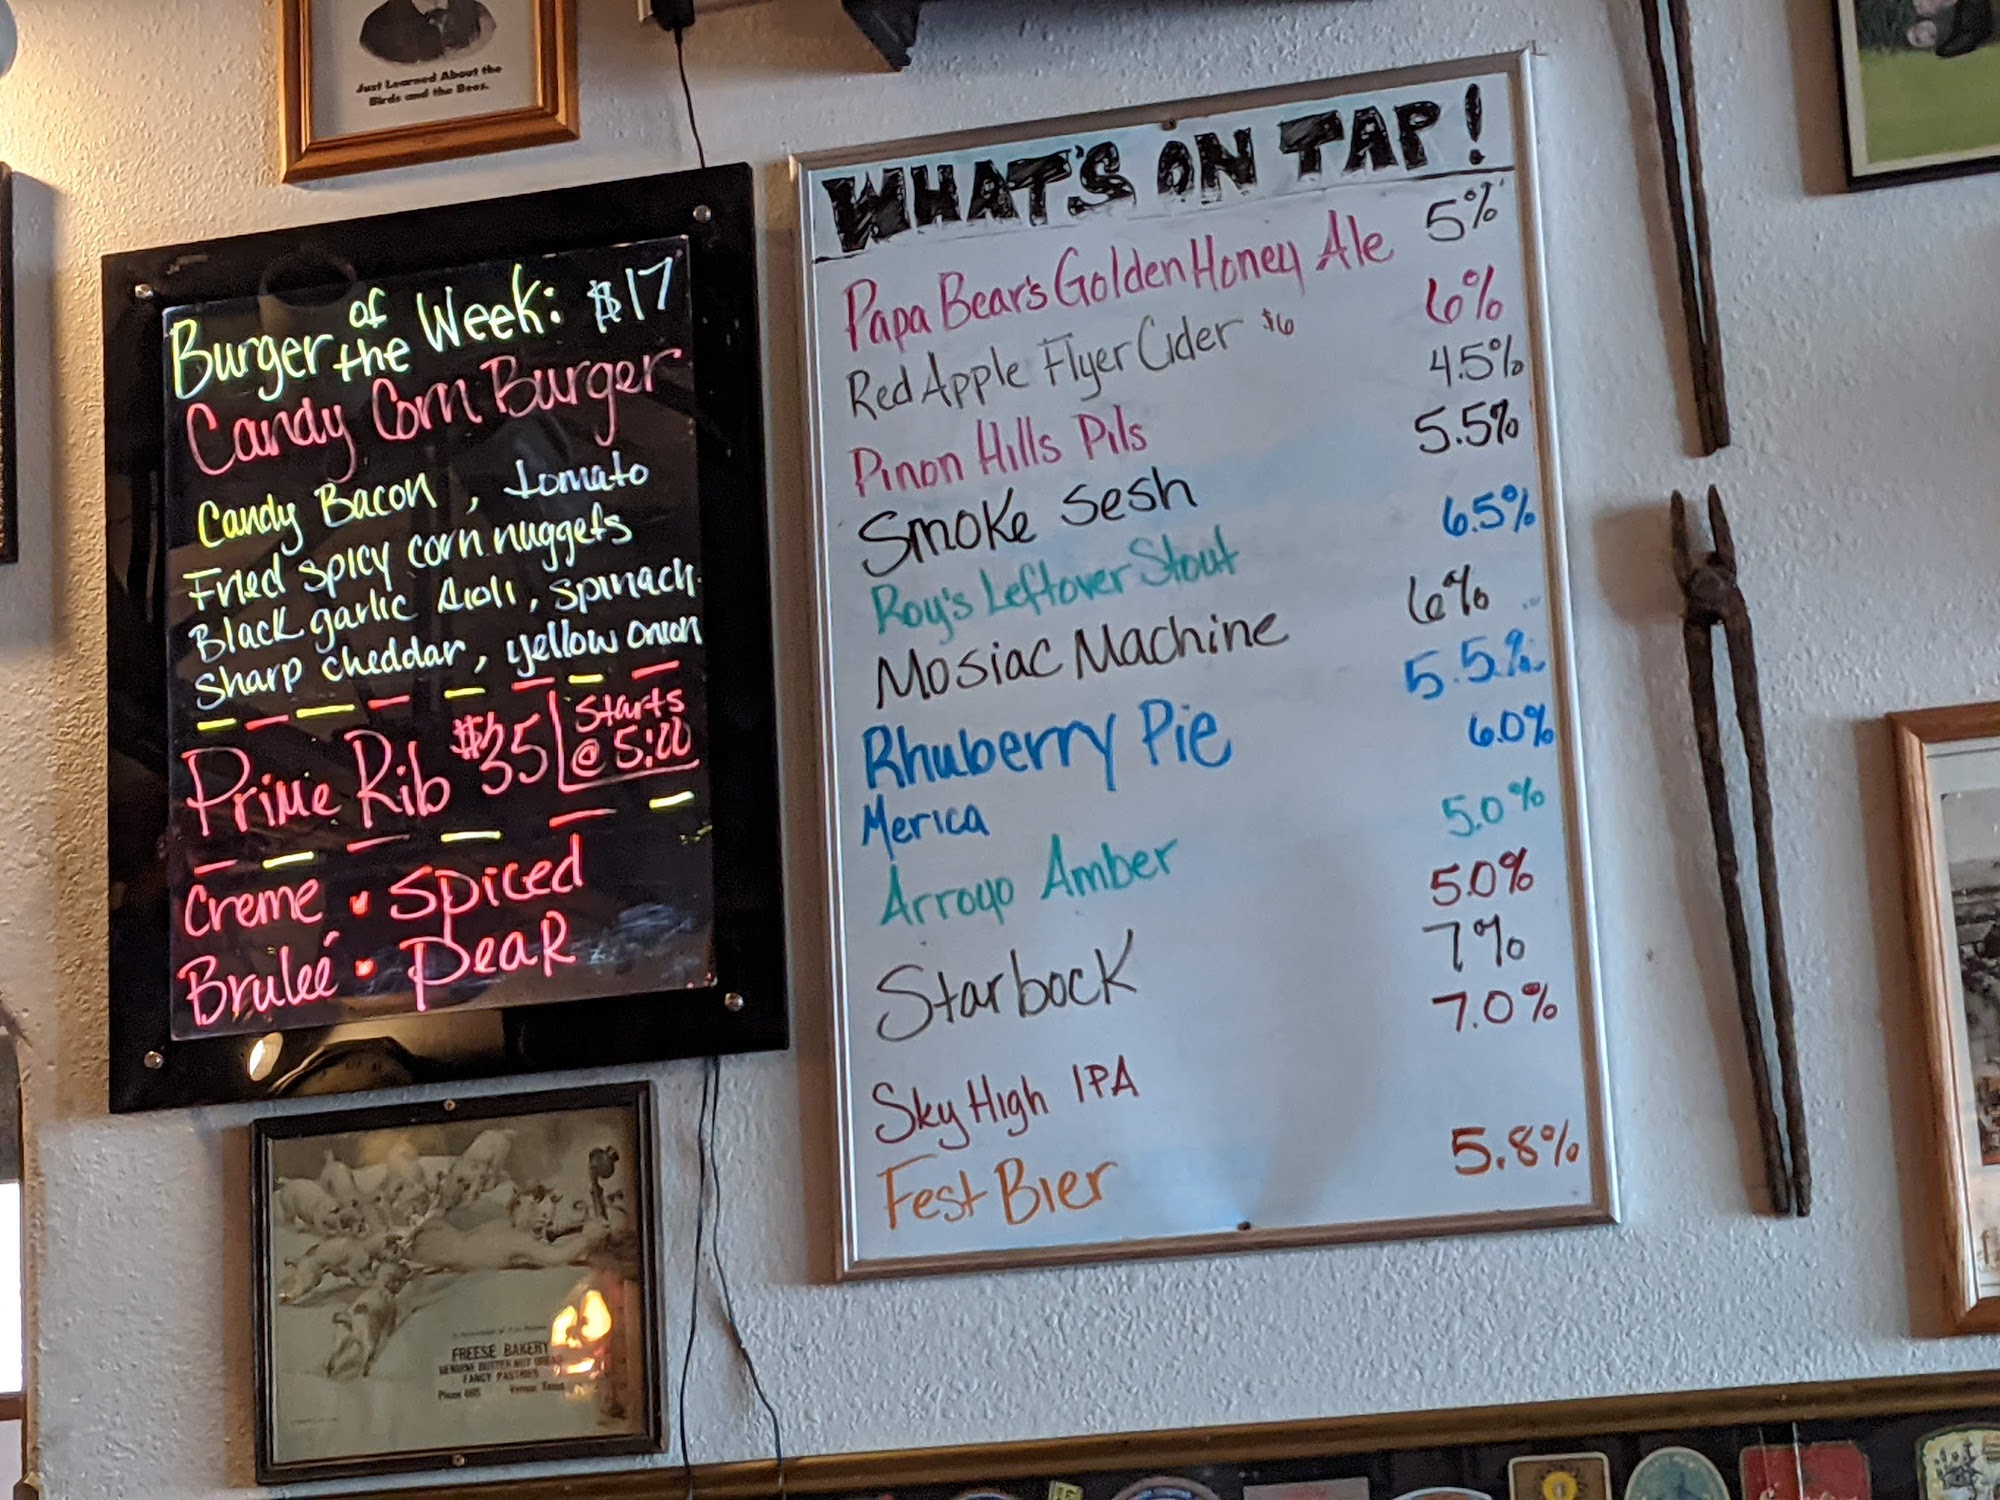 Just Learned About the
Birds and the Bees.
Burger of the Week: $17
Candy Corn Burger
Candy Bacon, tomato
Fried spicy corn nuggets
Black garlic Aioli, spinach
sharp cheddar, yellow onion
Prime Rib $35 Starts
@ 5:00
Creme • Spiced
Bruleé • Pear
WHAT'S ON TAP!
Papa Bear's Golden Honey Ale 5%
Red Apple Flyer Cider $6 6%
Pinon Hills Pils 4.5%
Smoke Sesh 5.5%
Roy's Leftover Stout 6.5%
Mosiac Machine 6%
Rhuberry Pie 5.5%
Merica 6.0%
Arroyo Amber 5.0%
Starbock 5.0%
7%
Sky High IPA 7.0%
Fest Bier 5.8%
FREESE BAKERY
FANCY PASTRIES